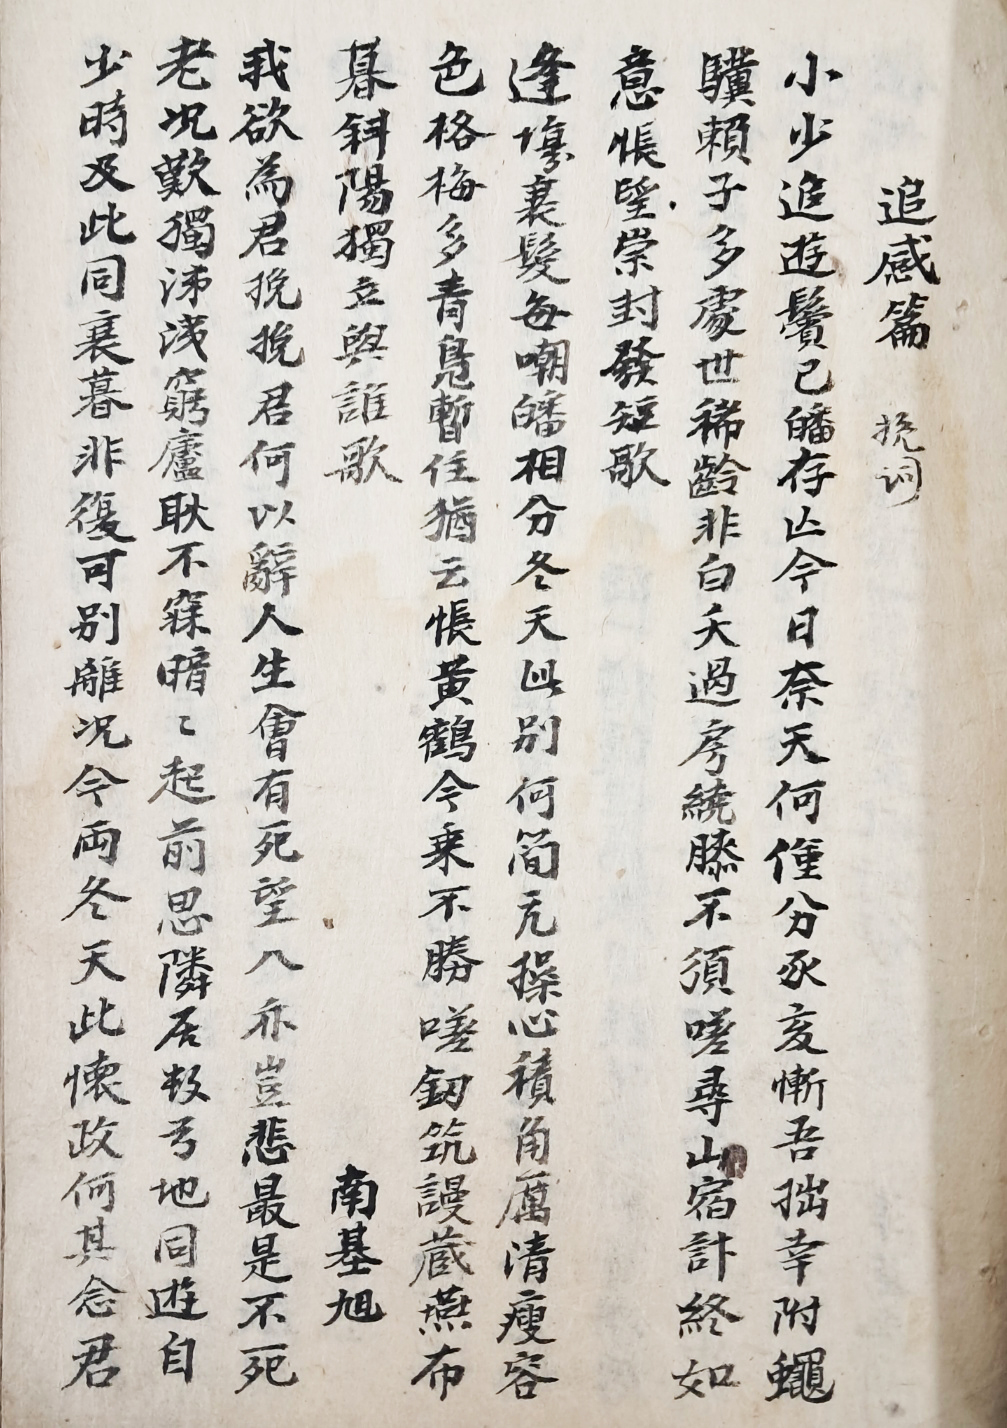 追感篇 挽词
小少追遊鬢已皤存亡今日奈天何僅分豕亥慚吾拙幸附蠅
驥賴子多處世稀齡非白夭過房繞膝不須嗟尋山宿計終如
意悵望崇封發短歌
逢場衰髮每嘲皤相分冬天此别何簡亢操心積角厲清瘦容
色格梅多青鳧暫住猶云悵黃鶴今乗不勝嗟釰筑謾蔵燕布
暮斜陽獨立與誰歌 南基旭
我欲為君挽挽君何以辭人生會有死望八亦豈悲最是不死
老况歎獨涕淺窮廬耿不寐暗〻起前思隣居数弓地同遊自
少時及此同衰暮非復可别離况今両冬天此懷政何其念君